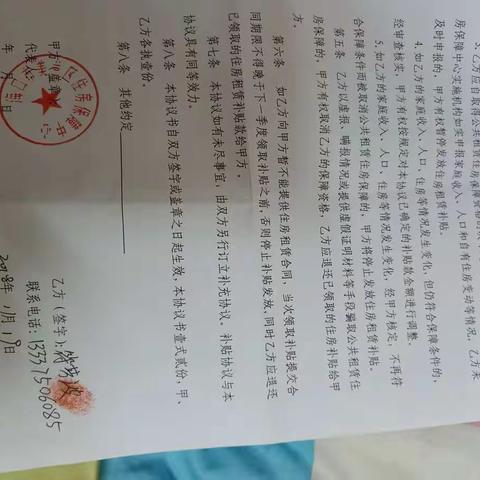 3. 乙方应自取得公共租赁住房保障资格
房保障中心实施机构如实申报家庭收入、人口和自有住房变动等情况。乙方未
及时申报的,甲方有权暂停发放住房租赁补贴。
4. 如乙方的家庭收入、人口、住房等情况发生变化,但仍符合保障条件的,
经审查核实,甲方有权按规定对本协议已确定的补贴款金额进行调整。
5. 如乙方的家庭收入、人口、住房等情况发生变化,经甲方核定,不再符
合保障条件而被取消公共租赁住房保障的,甲方将停止发放住房租赁补贴。
第五条 乙方以虚报、瞒报情况或提供虚假证明材料等手段骗取公共租赁住
房保障的,甲方有权取消乙方的保障资格,乙方应退还已领取的住房补贴给甲
方。
第六条 如乙方向甲方暂不能提供住房租赁合同,当次领取补贴提交合
同期限不得晚于下一季度领取补贴之前,否则停止补贴发放,同时乙方应退还
已领取的住房租赁补贴款给甲方。
第七条 本协议如有未尽事宜,由双方另行订立补充协议。补贴协议与本
协议具有同等效力。
第八条 本协议书自双方签字或盖章之日起生效,本协议书壹式贰份,甲、
乙方各执壹份。
第八条 其他约定
甲方(盖章)
代表
年 月 日
住房保障
乙方(签字):
联系电话:13337506085
2018年1月19日